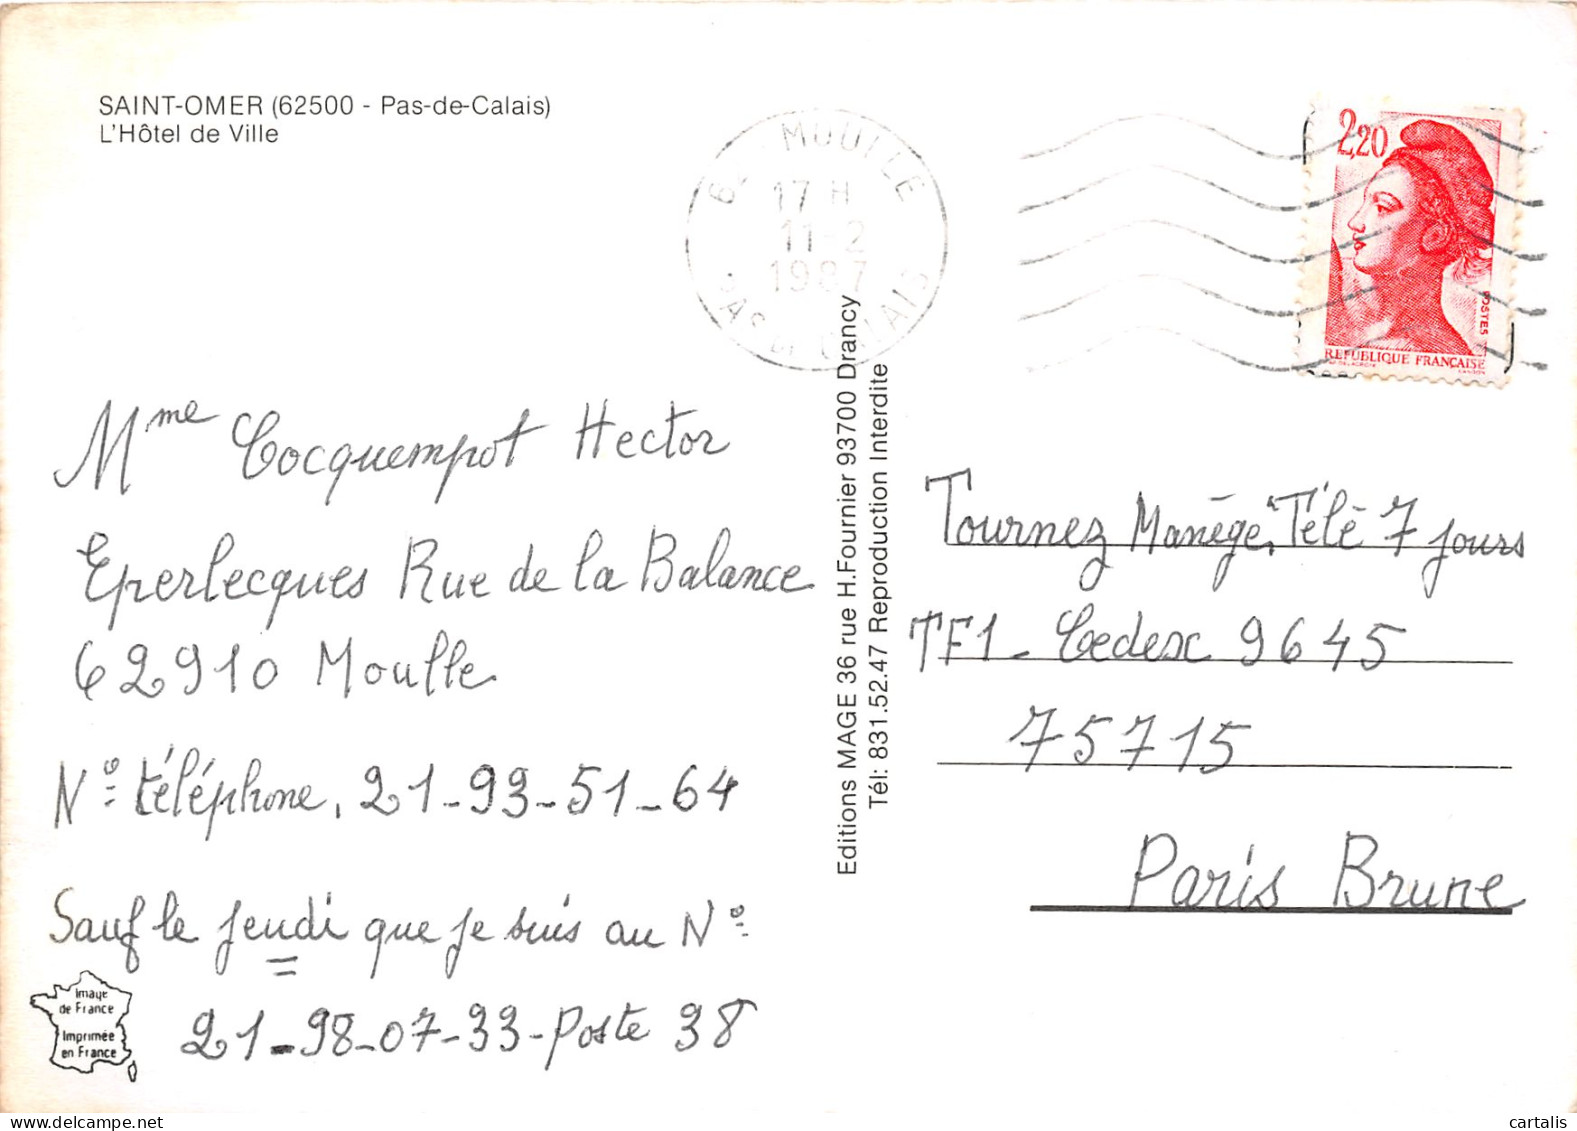 SAINT-OMER (62500 - Pas-de-Calais)
L'Hôtel de Ville
MOULLE
17 H
11-2
1987
PAS DE CALAIS
2,20
POSTES
REPUBLIQUE FRANÇAISE
Mme Cocquempot Hector
Eperlecques Rue de la Balance
62910 Moulle
N° téléphone. 21-93-51-64
Sauf le jeudi que je suis au N°
21-98-07-33-Poste 38
Image
de France
Imprimée
en France
Editions MAGE 36 rue H.Fournier 93700 Drancy
Tél: 831.52.47 Reproduction Interdite
Tournez Manège. Télé 7 jours
TF1 - Cedex 9645
75715
Paris Brune
cartalis